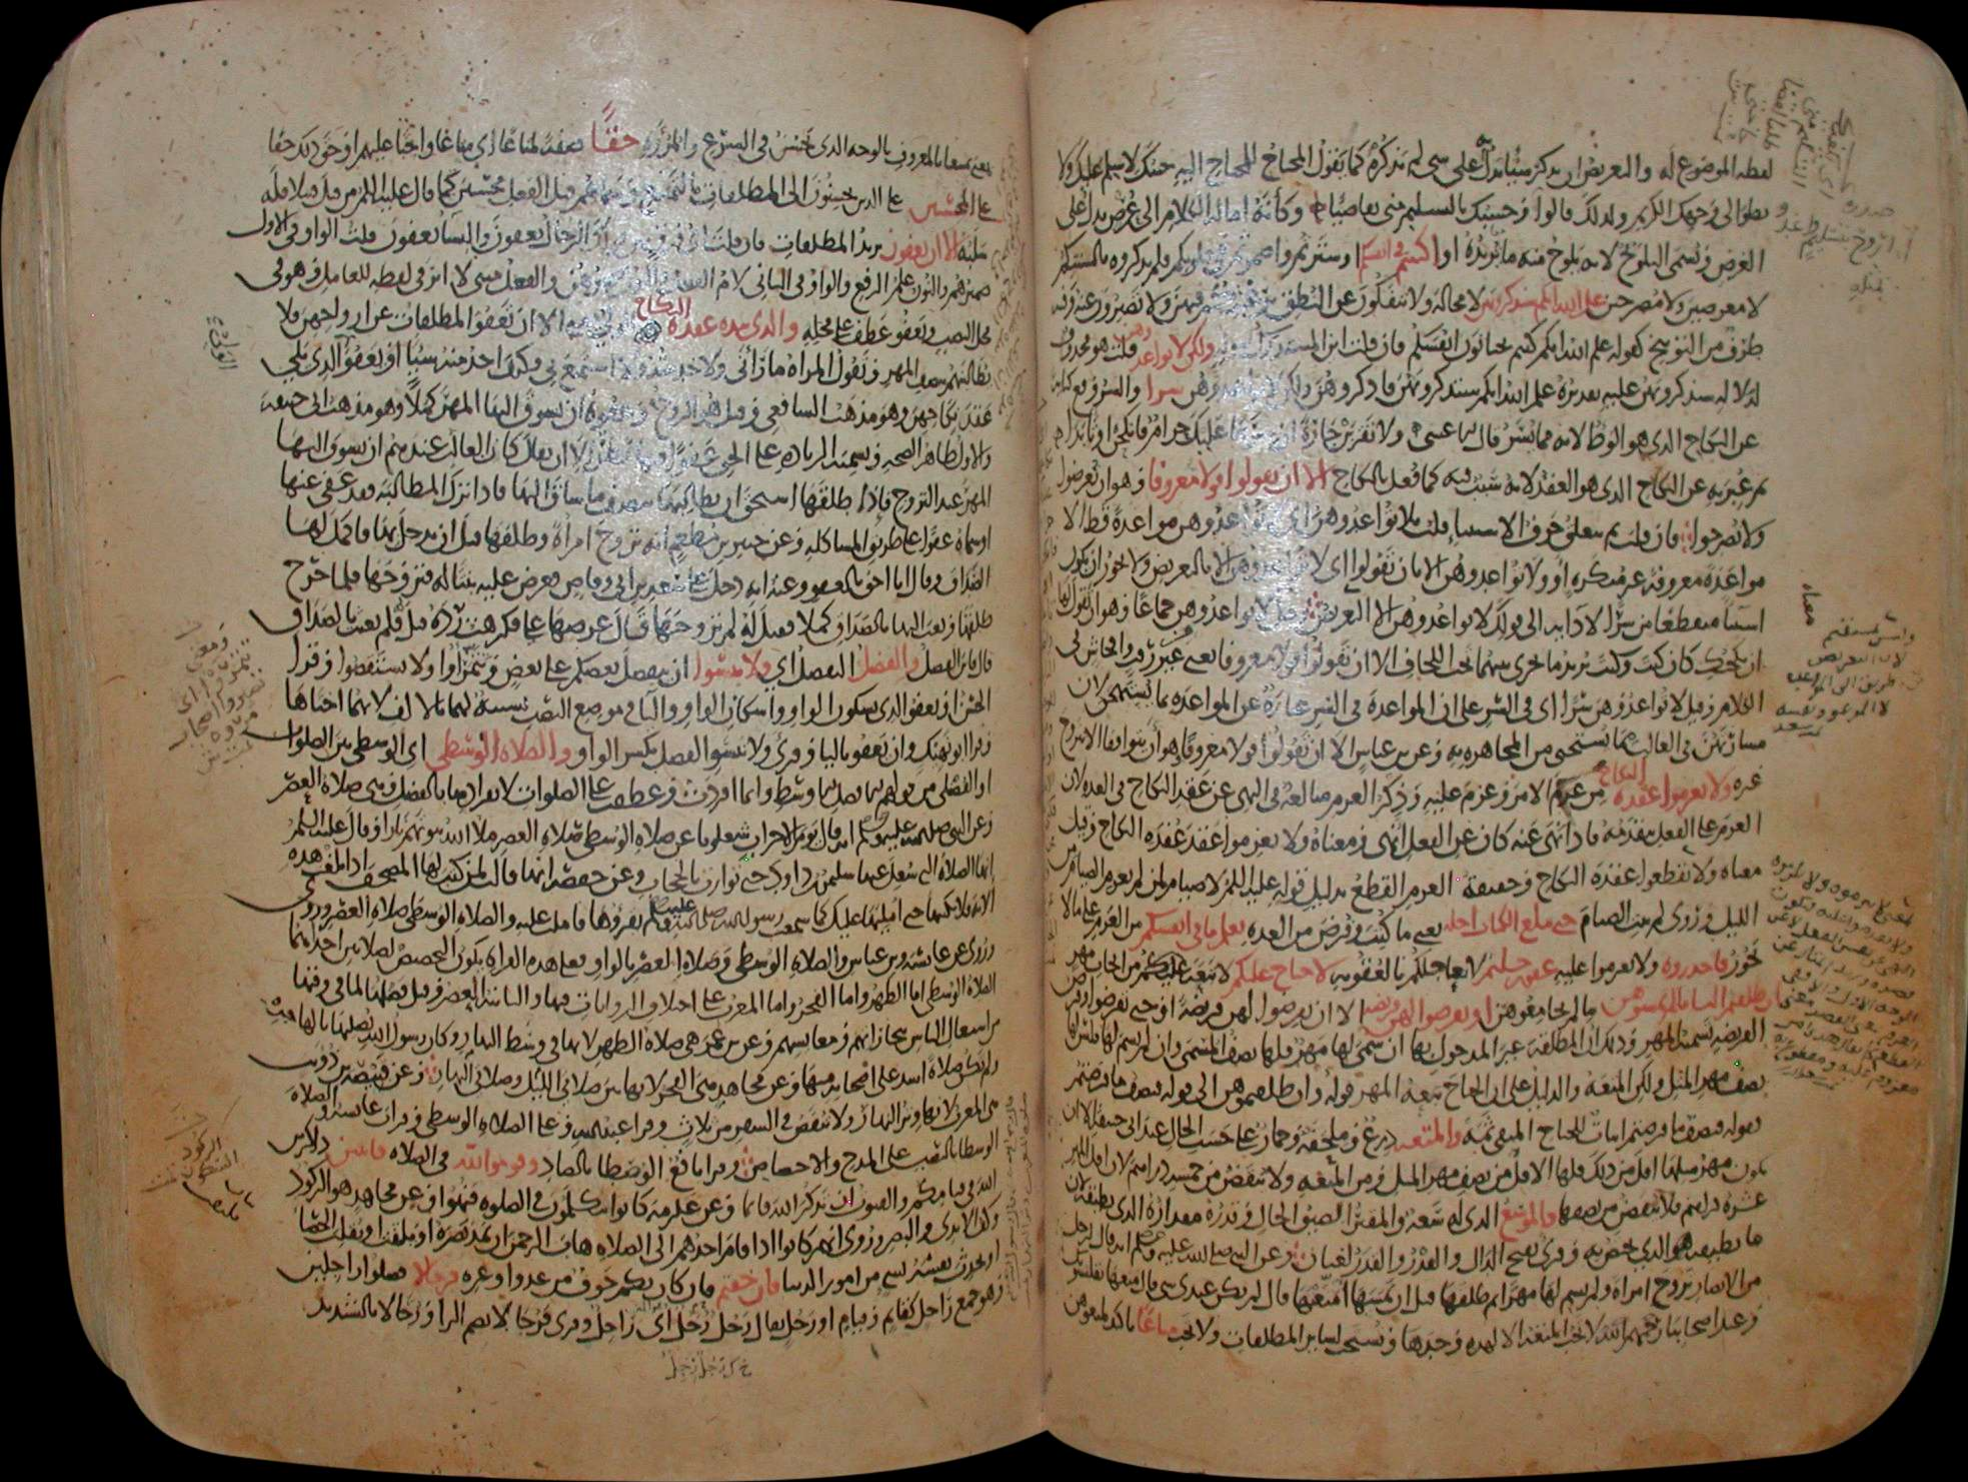 لفظه الموضوع له والتعريض ان يذكر شيئا يدل به على شى لم يذكره كما يقول المحتاج للمحتاج اليه جئتك لاسلم عليك ولا
نظر الى وجهك الكريم ولذلك قالوا وحسبك بالتسليم منى تقاضيا وكأنه امالة الكلام الى عرض يدل على
الغرض ويسمى التلويح لانه يلوح منه ما يريده او اكننتم فى انفسكم او سترتم واضمرتم فى قلوبكم فلم تذكروه بالسنتكم
لا معرضين ولا مصرحين علم الله انكم ستذكرونهن لا محالة ولا تنفكون عن النطق برغبتكم فيهن ولا تصبرون عنه وفيه
طرف من التوبيخ كقوله علم الله انكم كنتم تختانون انفسكم فان قلت اين المستدرك بقوله ولكن لا تواعدوهن قلت هو محذوف
لدلالة ستذكرونهن عليه تقديره علم الله انكم ستذكرونهن فاذكروهن ولكن لا تواعدوهن سرا والسر وقع كناية
عن النكاح الذى هو الوطا لانه مما يسر قال الاعشى ولا تقربن جارة ان سرها عليك حرام فانكحن او تابدا
ثم عبر به عن النكاح الذى هو العقد لانه سبب فيه كما فعل بالنكاح الا ان تقولوا قولا معروفا وهو ان تعرضوا
ولا تصرحوا فان قلت بم يتعلق حرف الاستثنا قلت بلا تواعدوهن اى لا تواعدوهن مواعدة قط الا
مواعدة معروفة غير منكرة او ولا تواعدوهن الا بان تقولوا اى لا تواعدوهن الا بالتعريض ولا يجوز ان يكون
استثنا منقطعا من سرا لادايه الى قولك لا تواعدوهن الا التعريض وقيل لا تواعدوهن جماعا وهو ان يقول لها
ان نكحتك كان كيت وكيت يريد ما يجرى بينهما تحت اللحاف الا ان تقولوا قولا معروفا يعنى من غير رفث ولا افحاش فى
الكلام وقيل لا تواعدوهن سرا اى فى السر على ان المواعدة فى السر عبارة عن المواعدة بما يستهجن لان
مسارتهن فى الغالب بما يستحيى من المجاهرة به وعن بن عباس الا ان تقولوا قولا معروفا هو ان يتواثقا الا تتزوج
غيره ولا تعزموا عقدة النكاح من عزم الامر وعزم عليه وذكر العزم مبالغة فى النهى عن عقد النكاح فى العدة لان
العزم على الفعل يتقدمه فاذا نهى عنه كان عن الفعل انهى ومعناه ولا تعزموا عقد عقدة النكاح وقيل
معناه ولا تقطعوا عقدة النكاح وحقيقة العزم القطع بدليل قوله عليه السلم لا صيام لمن لم يعزم الصيام من
الليل وروى لم يبت الصيام حتى يبلغ الكتاب اجله يعنى ما كتب وفرض من العدة يعلم ما فى انفسكم من العزم على ما لا
يجوز فاحذروه ولا تعزموا عليه غفور حليم لا يعاجلكم بالعقوبة لا جناح عليكم لا تبعة عليكم من ايجاب مهر
ان طلقتم النسا ما لم تمسوهن ما لم تجامعوهن او تفرضوا لهن فريضة الا ان تفرضوا لهن فريضة او حتى تفرضوا وفرض
الفريضة تسمية المهر وذلك ان المطلقة غير المدخول بها ان سمى لها مهر فلها نصف المسمى وان لم يسم لها فليس لها
نصف مهر المثل ولكن المتعة والدليل على ان الجناح تبعة المهر قوله وان طلقتموهن الى قوله فنصف ما فرضتم
فقوله فنصف ما فرضتم اثبات للجناح المنفى ثمة والمتعة درع وملحفة وخمار على حسب الحال عند ابى حنيفة الا ان
يكون مهر مثلها اقل من ذلك فلها الاقل من نصف مهر المثل ومن المتعة ولا تنقص من خمسة دراهم لان اقل المهر
عشرة دراهم فلا تنقص من نصفها والموسع الذى له سعة والمقتر الضيق الحال وقدره مقداره الذى يطيقه لان
ما يطيقه هو الذى يختص به وقرئ بفتح الدال والقدر والقدر لغتان وعن النبى صلى الله عليه وسلم انه قال لرجل
من الانصار تزوج امراة ولم يسم لها مهرا ثم طلقها قبل ان يمسها امتعتها قال لم يكن عندى شى قال متعها بقلنسوتك
وعند اصحابنا رحمهم الله لا تجب المتعة الا لهذه وحدها وتستحب لساير المطلقات ولا تجب متاعا تاكيد لمتعوهن
بمعنى تمتيعا بالمعروف بالوجه الذى يحسن فى الشرع والمروة حقا صفة لمتاعا اى متاعا واجبا عليهم او حق ذلك حقا
على المحسنين على الذين يحسنون الى المطلقات بالتمتيع وسماهم قبل الفعل محسنين كما قال عليه السلم من قتل قتيلا فله
سلبه الا ان يعفون يريد المطلقات فان قلت اى فرق بين قولك الرجال يعفون والنسا يعفون قلت الواو فى الاول
ضميرهم والنون علم الرفع والواو فى الثانى لام الفعل والنون ضميرهن والفعل مبنى لا اثر فى لفظه للعامل وهو فى
محل النصب ويعفو عطف على محله والذى بيده عقدة النكاح الولى يعنى الا ان تعفو المطلقات عن ازواجهن فلا
يطالبنهم بنصف المهر وتقول المراة ما رآنى ولا خدمته ولا استمتع بى فكيف اخذ منه شيئا او يعفو الذى يلى
عقد نكاحهن وهو مذهب الشافعى وقيل هو الزوج وعفوه ان يسوق اليها المهر كملا وهو مذهب ابى حنيفة
والاول ظاهر الصحة وتسمية الزيادة على الحق عفوا فيها نظر الا ان يقال كان الغالب عندهم ان يسوق اليها
المهر عند التزوج فاذا طلقها استحق ان يطالبها بنصف ما ساق اليها فاذا ترك المطالبة فقد عفى عنها
او سماه عفوا على طريق المشاكلة وعن جبير بن مطعم انه تزوج امراة وطلقها قبل ان يدخل بها فاكمل لها
الصداق وقال انا احق بالعفو وعنه انه دخل على سعد بن ابى وقاص فعرض عليه بنتا له فتزوجها فلما خرج
طلقها وبعث اليها بالصداق كملا فقيل له لم تزوجتها قال عرضها على فكرهت رده قيل فلم بعثت بالصداق
قال فاين الفضل والفضل التفضل اى ولا تنسوا ان يتفضل بعضكم على بعض وتتمرأوا ولا تستقصوا وقرا
الحسن او يعفو الذى بسكون الواو واسكان الواو واليا فى موضع النصب تشبيه لهما بالالف لانهما اختاها
وقرا ابو نهيك وان يعفو باليا وقرئ ولا تنسو الفضل بكسر الواو والصلاة الوسطى اى الوسطى بين الصلوات
او الفضلى من قولهم للافضل الاوسط وانما افردت وعطفت على الصلوات لانفرادها بالفضل وهى صلاة العصر
وعن النبى صلى الله عليه وسلم انه قال يوم الاحزاب شغلونا عن صلاة الوسطى صلاة العصر ملا الله بيوتهم نارا وقال عليه السلم
انها الصلاة التى شغل عنها سليمن بن داود حتى توارت بالحجاب وعن حفصة انها قالت لمن كتب لها المصحف اذا بلغت هذه
الاية فلا تكتبها حتى امليها عليك كما سمعت رسول الله صلى الله عليه وسلم يقروها فاملت عليه والصلاة الوسطى صلاة العصر وروى
وروى عن عايشة وبن عباس والصلاة الوسطى وصلاة العصر بالواو فعلى هذه القراة يكون التخصيص لصلاتين احداهما
الصلاة الوسطى اما الظهر واما الفجر واما المغرب على اختلاف الروايات فيها والثانية العصر وقيل فضلها لما فى وقتها
من اشتغال الناس بتجاراتهم ومعايشهم وعن بن عمر هى صلاة الظهر لانها فى وسط النهار وكان رسول الله يصليها بالهاجرة
ولم تكن صلاة اشد على اصحابه منها وعن مجاهد هى الفجر لانها بين صلاتى الليل وصلاتى النهار وعن قبيصة بن ذويب
هى المغرب لانها وتر النهار ولا تنقص فى السفر من ثلاث وقرا عبد الله وعلى الصلاة الوسطى وقرات عايشة والصلاة
الوسطى بالنصب على المدح والاختصاص وقرا نافع الوصطا بالصاد وقوموا لله فى الصلاة قانتين ذاكرين
لله فى قيامكم والقنوت ان تذكر الله قايما وعن عكرمة كانوا يتكلمون فى الصلوة فنهوا وعن مجاهد هو الركود
وكف الايدى والبصر وروى انهم كانوا اذا قام احدهم الى الصلاة هاب الرحمن ان يمد بصره او يلتفت او يقلب الحصا
او يحدث نفسه بشى من امور الدنيا فان خفتم فان كان بكم خوف من عدو او غيره فرجالا فصلوا راجلين
وهو جمع راجل كقايم وقيام او رجل يقال رجل رجل اى راجل وقرى فرجالا بضم الرا ورجالا بالتشديد